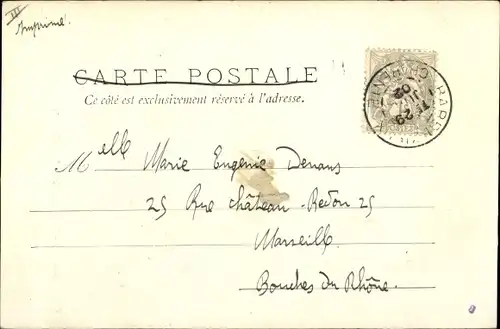 Imprimé.
CARTE POSTALE
Ce côté est exclusivement réservé à l'adresse.
Melle Marie Eugenie Denans
25 Rue Château-Redon 25
Marseille
Bouches du Rhône.